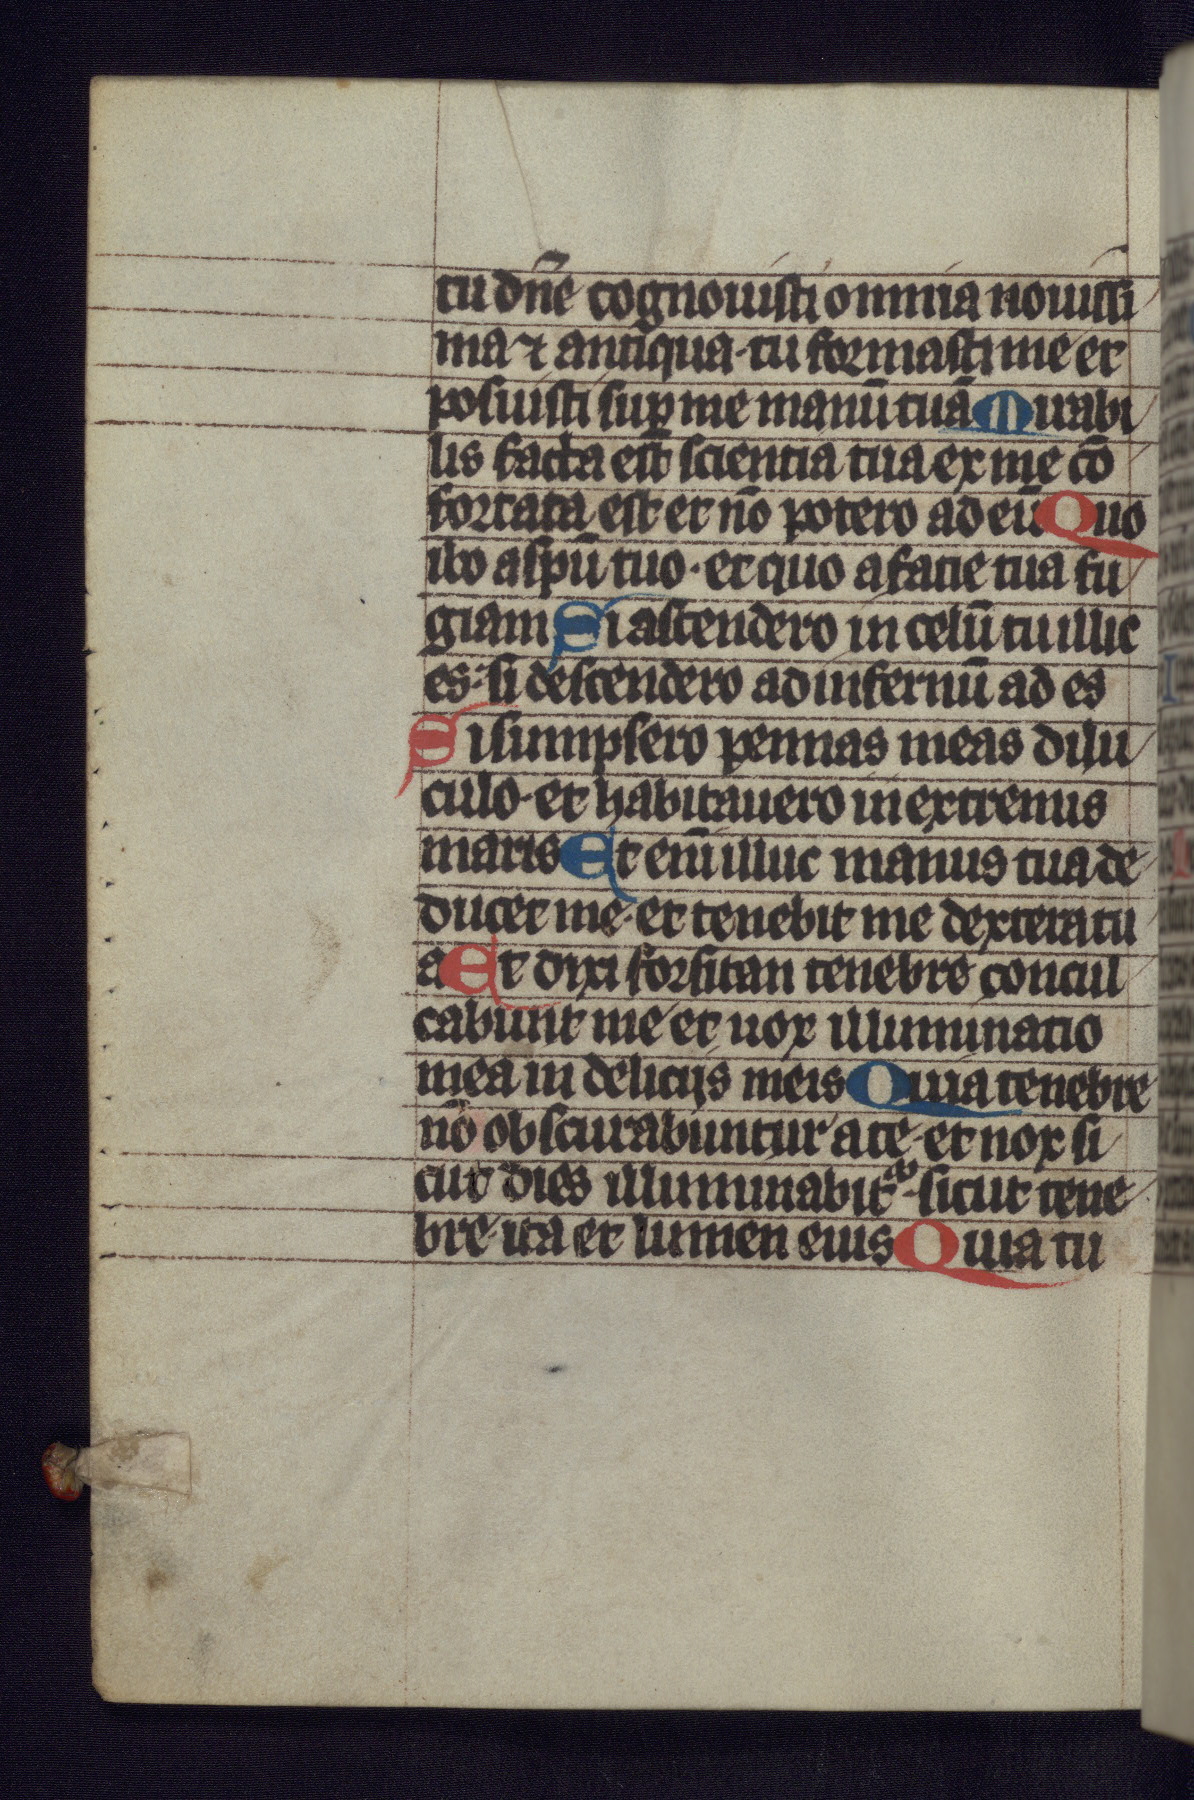 tu dñe cognouisti omnia nouissi
ma ⁊ antiqua · tu formasti me et
posuisti suꝑ me manū tuā Mirabi
lis facta est scientia tua ex me cō
fortata est et nō potero ad eū Quo
ibo a spū tuo · et quo a facie tua fu
giam Si ascendero in celū tu illic
es · si descendero ad infernū ad es
Si sumpsero pennas meas dilu
culo · et habitauero in extremis
maris Et eni᷑ illuc manus tua de
ducet me · et tenebit me dextera tu
a Et dixi forsitan tenebre concul
cabunt me et nox illuminatio
mea in delicijs meis Quia tenebre
nō obscurabuntur a te · et nox si
cut dies illuminabit᷑ · sicut tene
bre · ita et lumen eius Quia tu